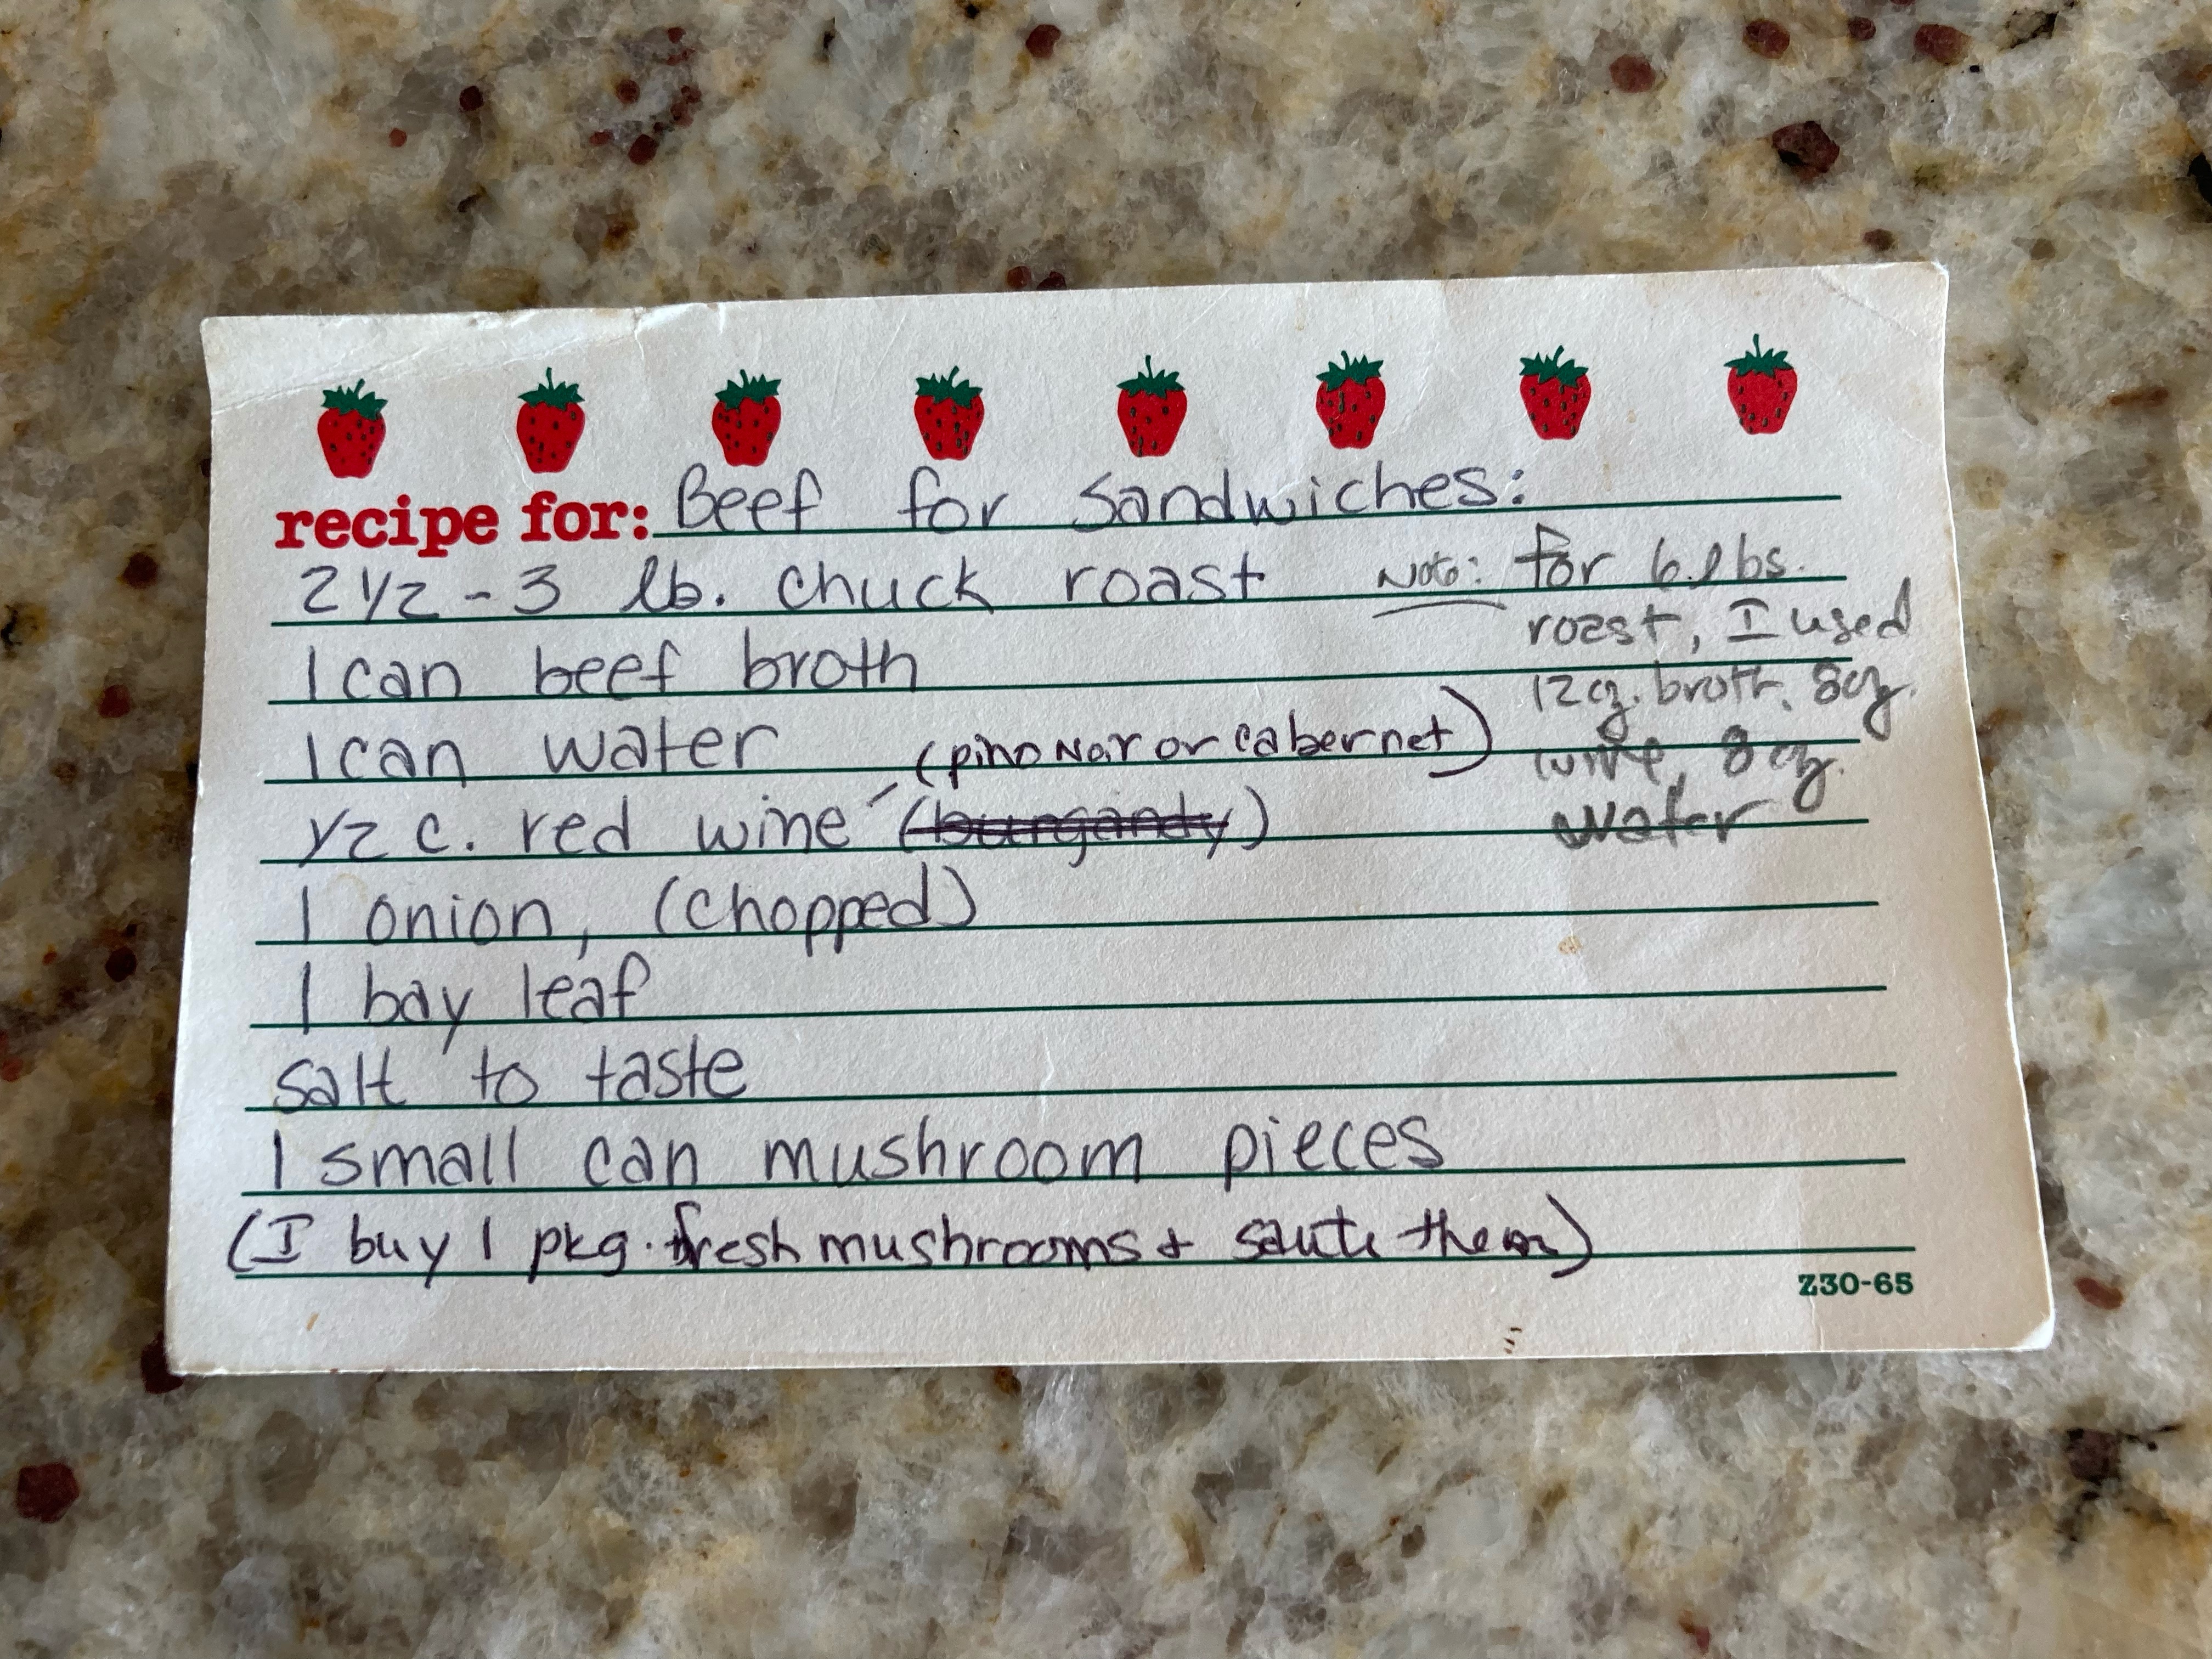 recipe for: Beef for Sandwiches:
2 1/2 - 3 lb. chuck roast
1 can beef broth
1 can water
(pino Noir or cabernet)
1/2 c. red wine (burgandy)
1 onion, (chopped)
1 bay leaf
salt to taste
1 small can mushroom pieces
(I buy 1 pkg. fresh mushrooms + saute them)
Note: for 6 lbs.
roast, I used
12 oz. broth, 8 oz.
wine, 8 oz.
water
Z30-65